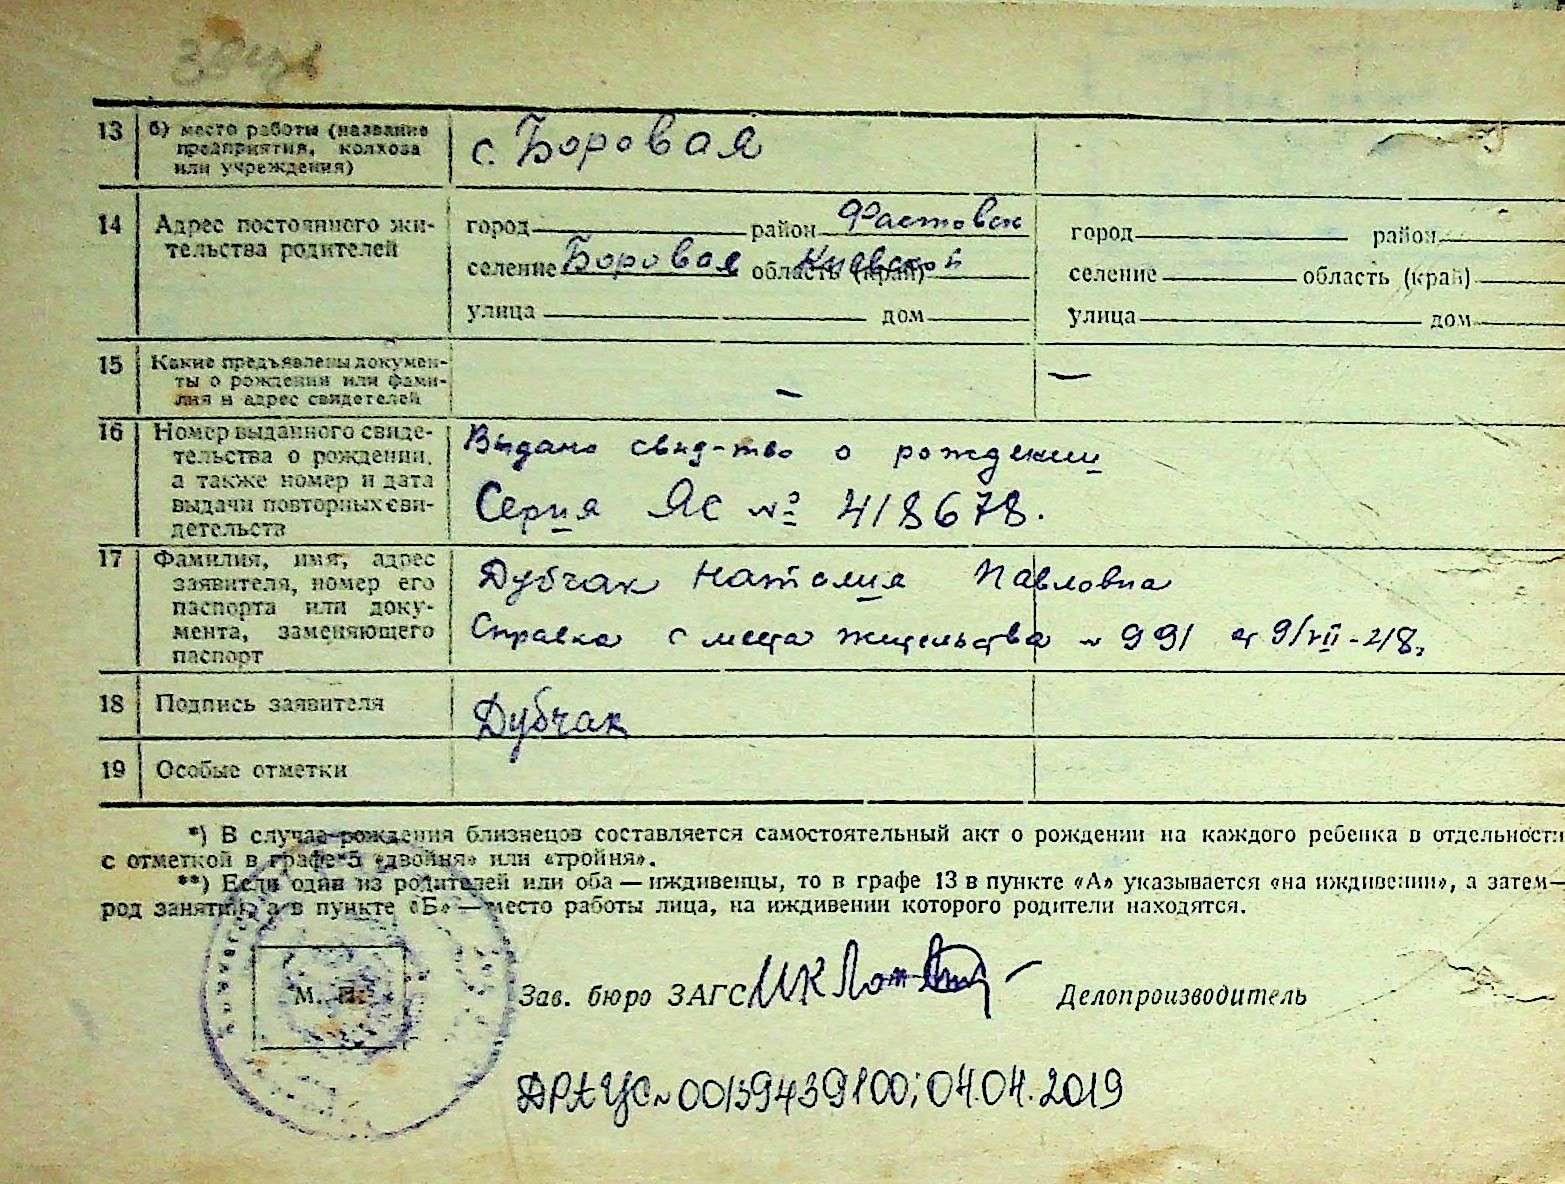 13 б) место работы (название
предприятия, колхоза
или учреждения)
с. Боровая
14 Адрес постоянного жи-
тельства родителей
город район Фастовск
селение Боровая область (край) Киевской
улица дом
город район
селение область (край)
улица дом
15 Какие предъявлены докумен-
ты о рождении или фами-
лия и адрес свидетелей
–
—
16 Номер выданного свиде-
тельства о рождении,
а также номер и дата
выдачи повторных сви-
детельств
Выдано свид-тво о рождении
Серия ЯС № 418678.
17 Фамилия, имя, адрес
заявителя, номер его
паспорта или доку-
мента, заменяющего
паспорт
Дубчак Наталия Павловна
Справка с места жительства № 991 от 9/VII-48
18 Подпись заявителя
Дубчак
19 Особые отметки
*) В случае рождения близнецов составляется самостоятельный акт о рождении на каждого ребенка в отдельности
с отметкой в графе 5 «двойня» или «тройня».
**) Если один из родителей или оба — иждивенцы, то в графе 13 в пункте «А» указывается «на иждивении», а затем—
род занятий, а в пункте «Б» — место работы лица, на иждивении которого родители находятся.
М. П.
Зав. бюро ЗАГС Делопроизводитель
ДРАЦС № 00139439100; 04.04.2019